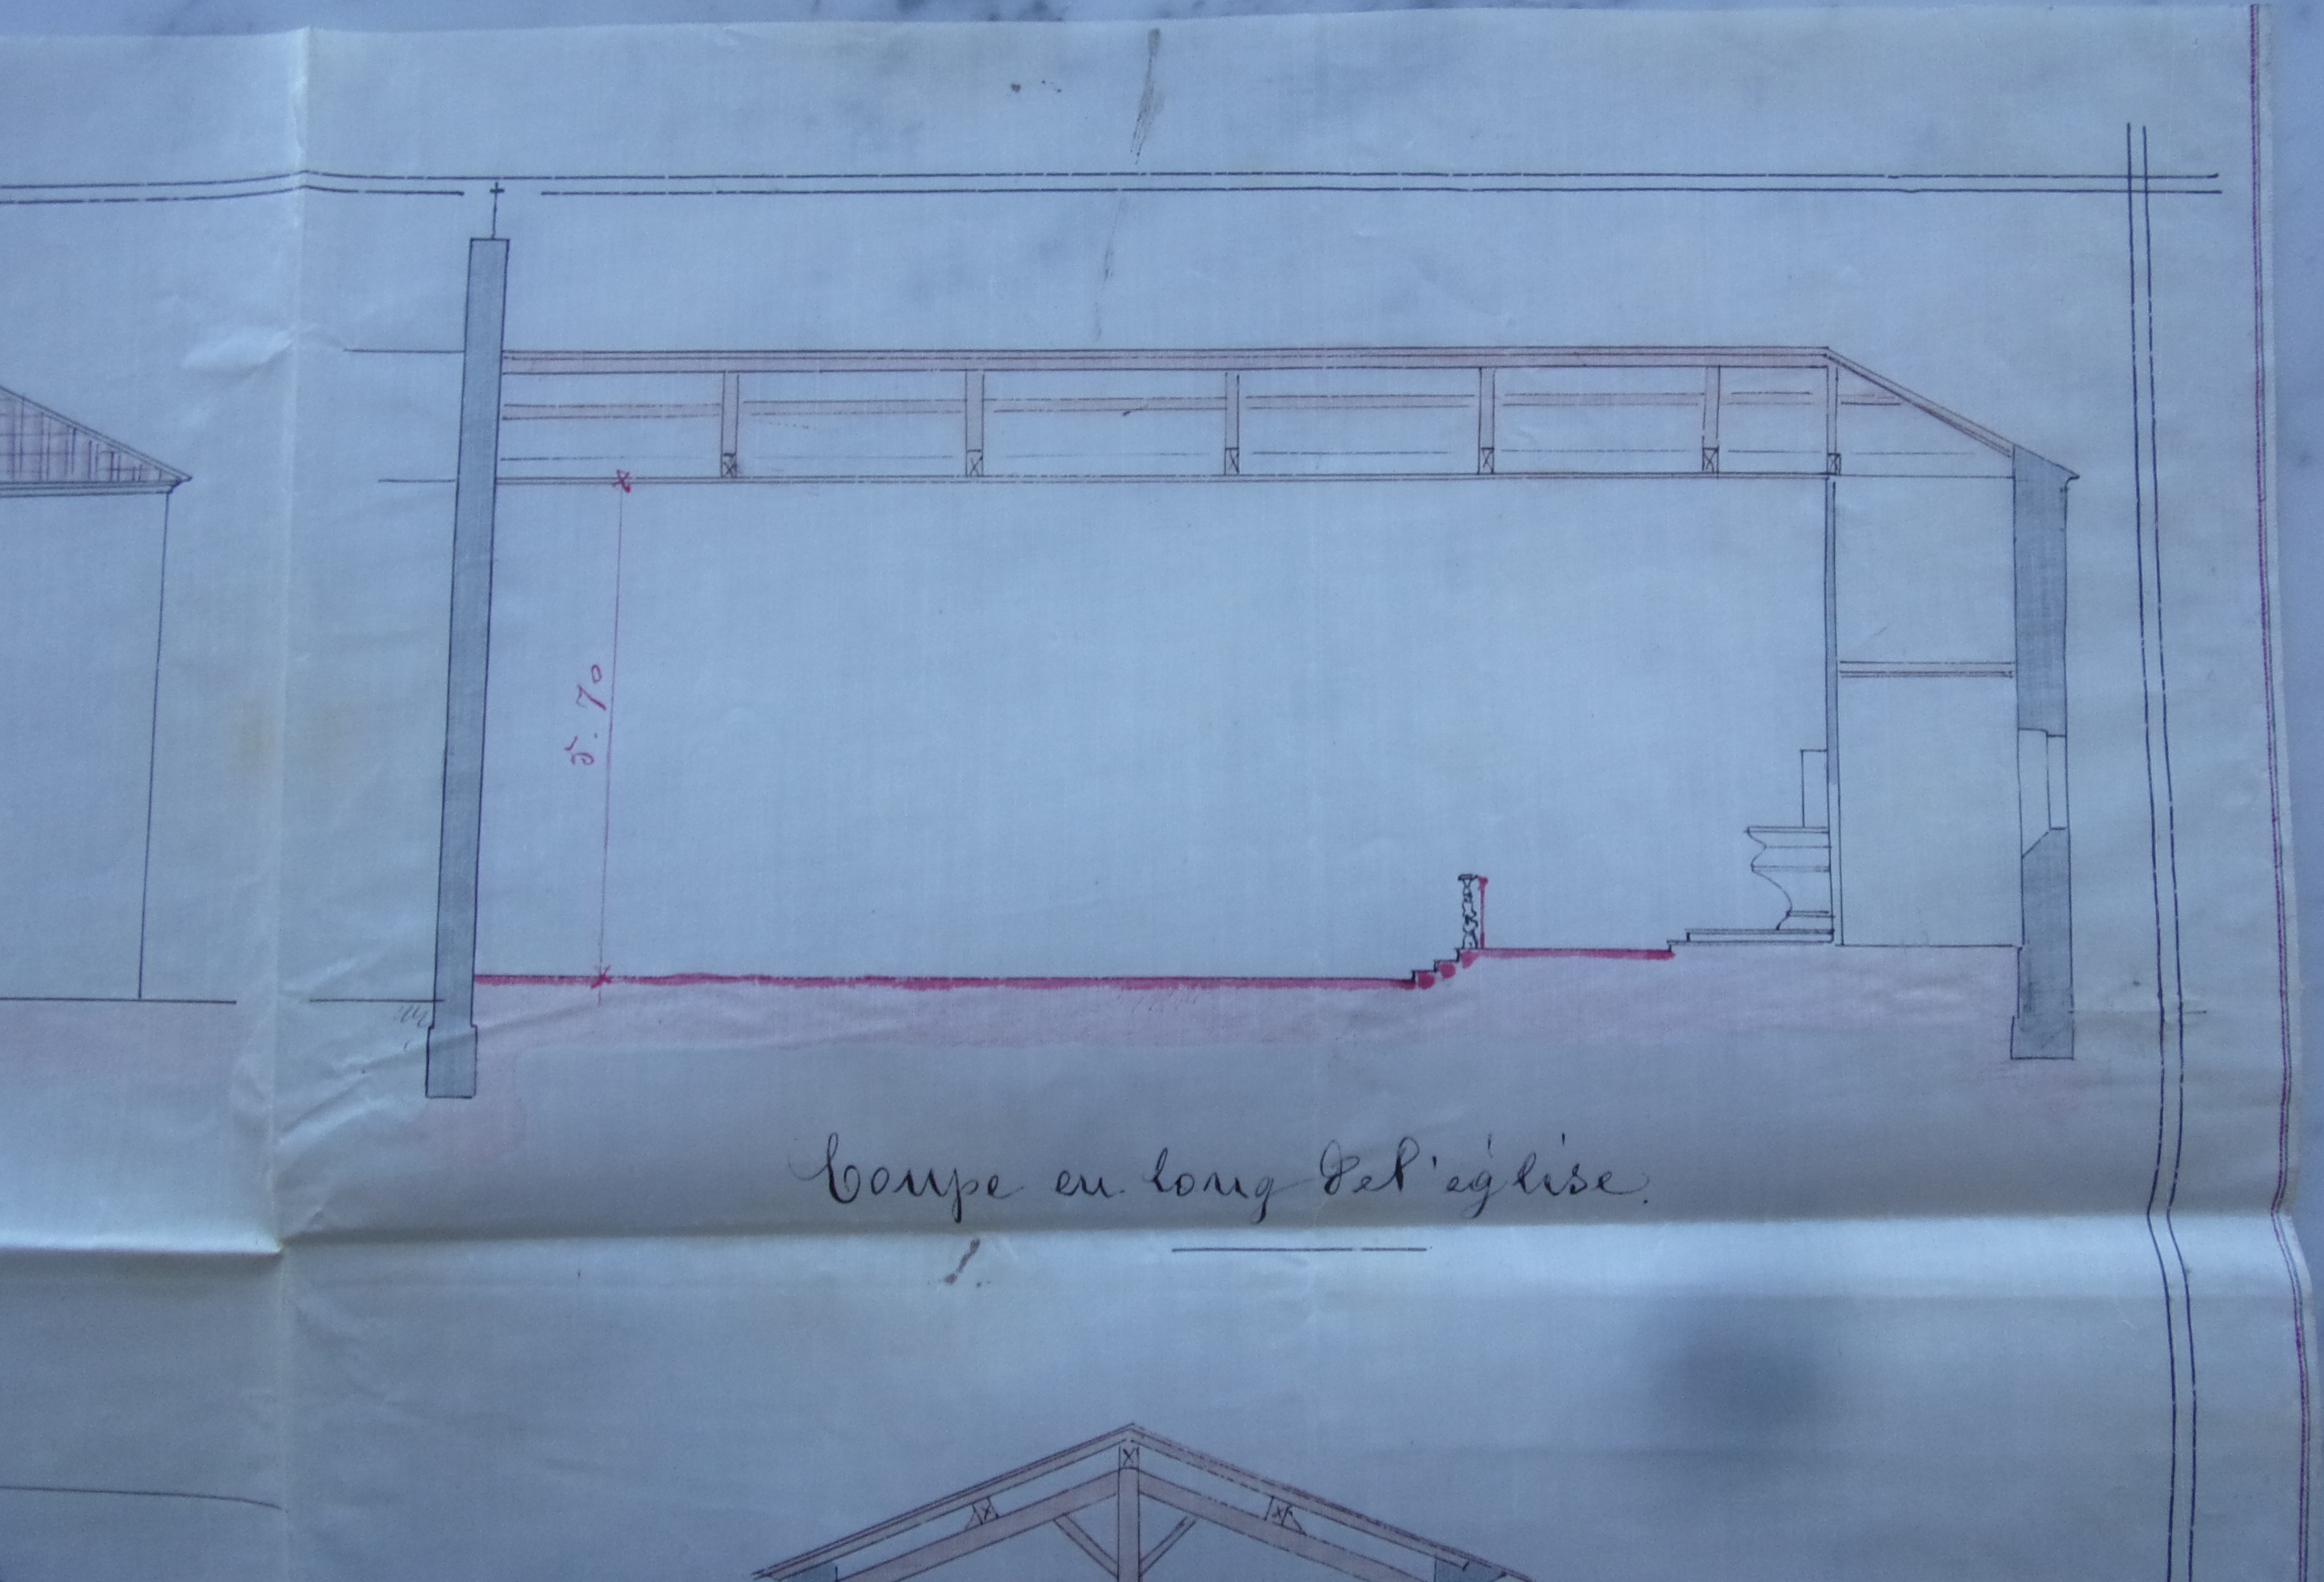 5.70
Coupe en long de l'église.